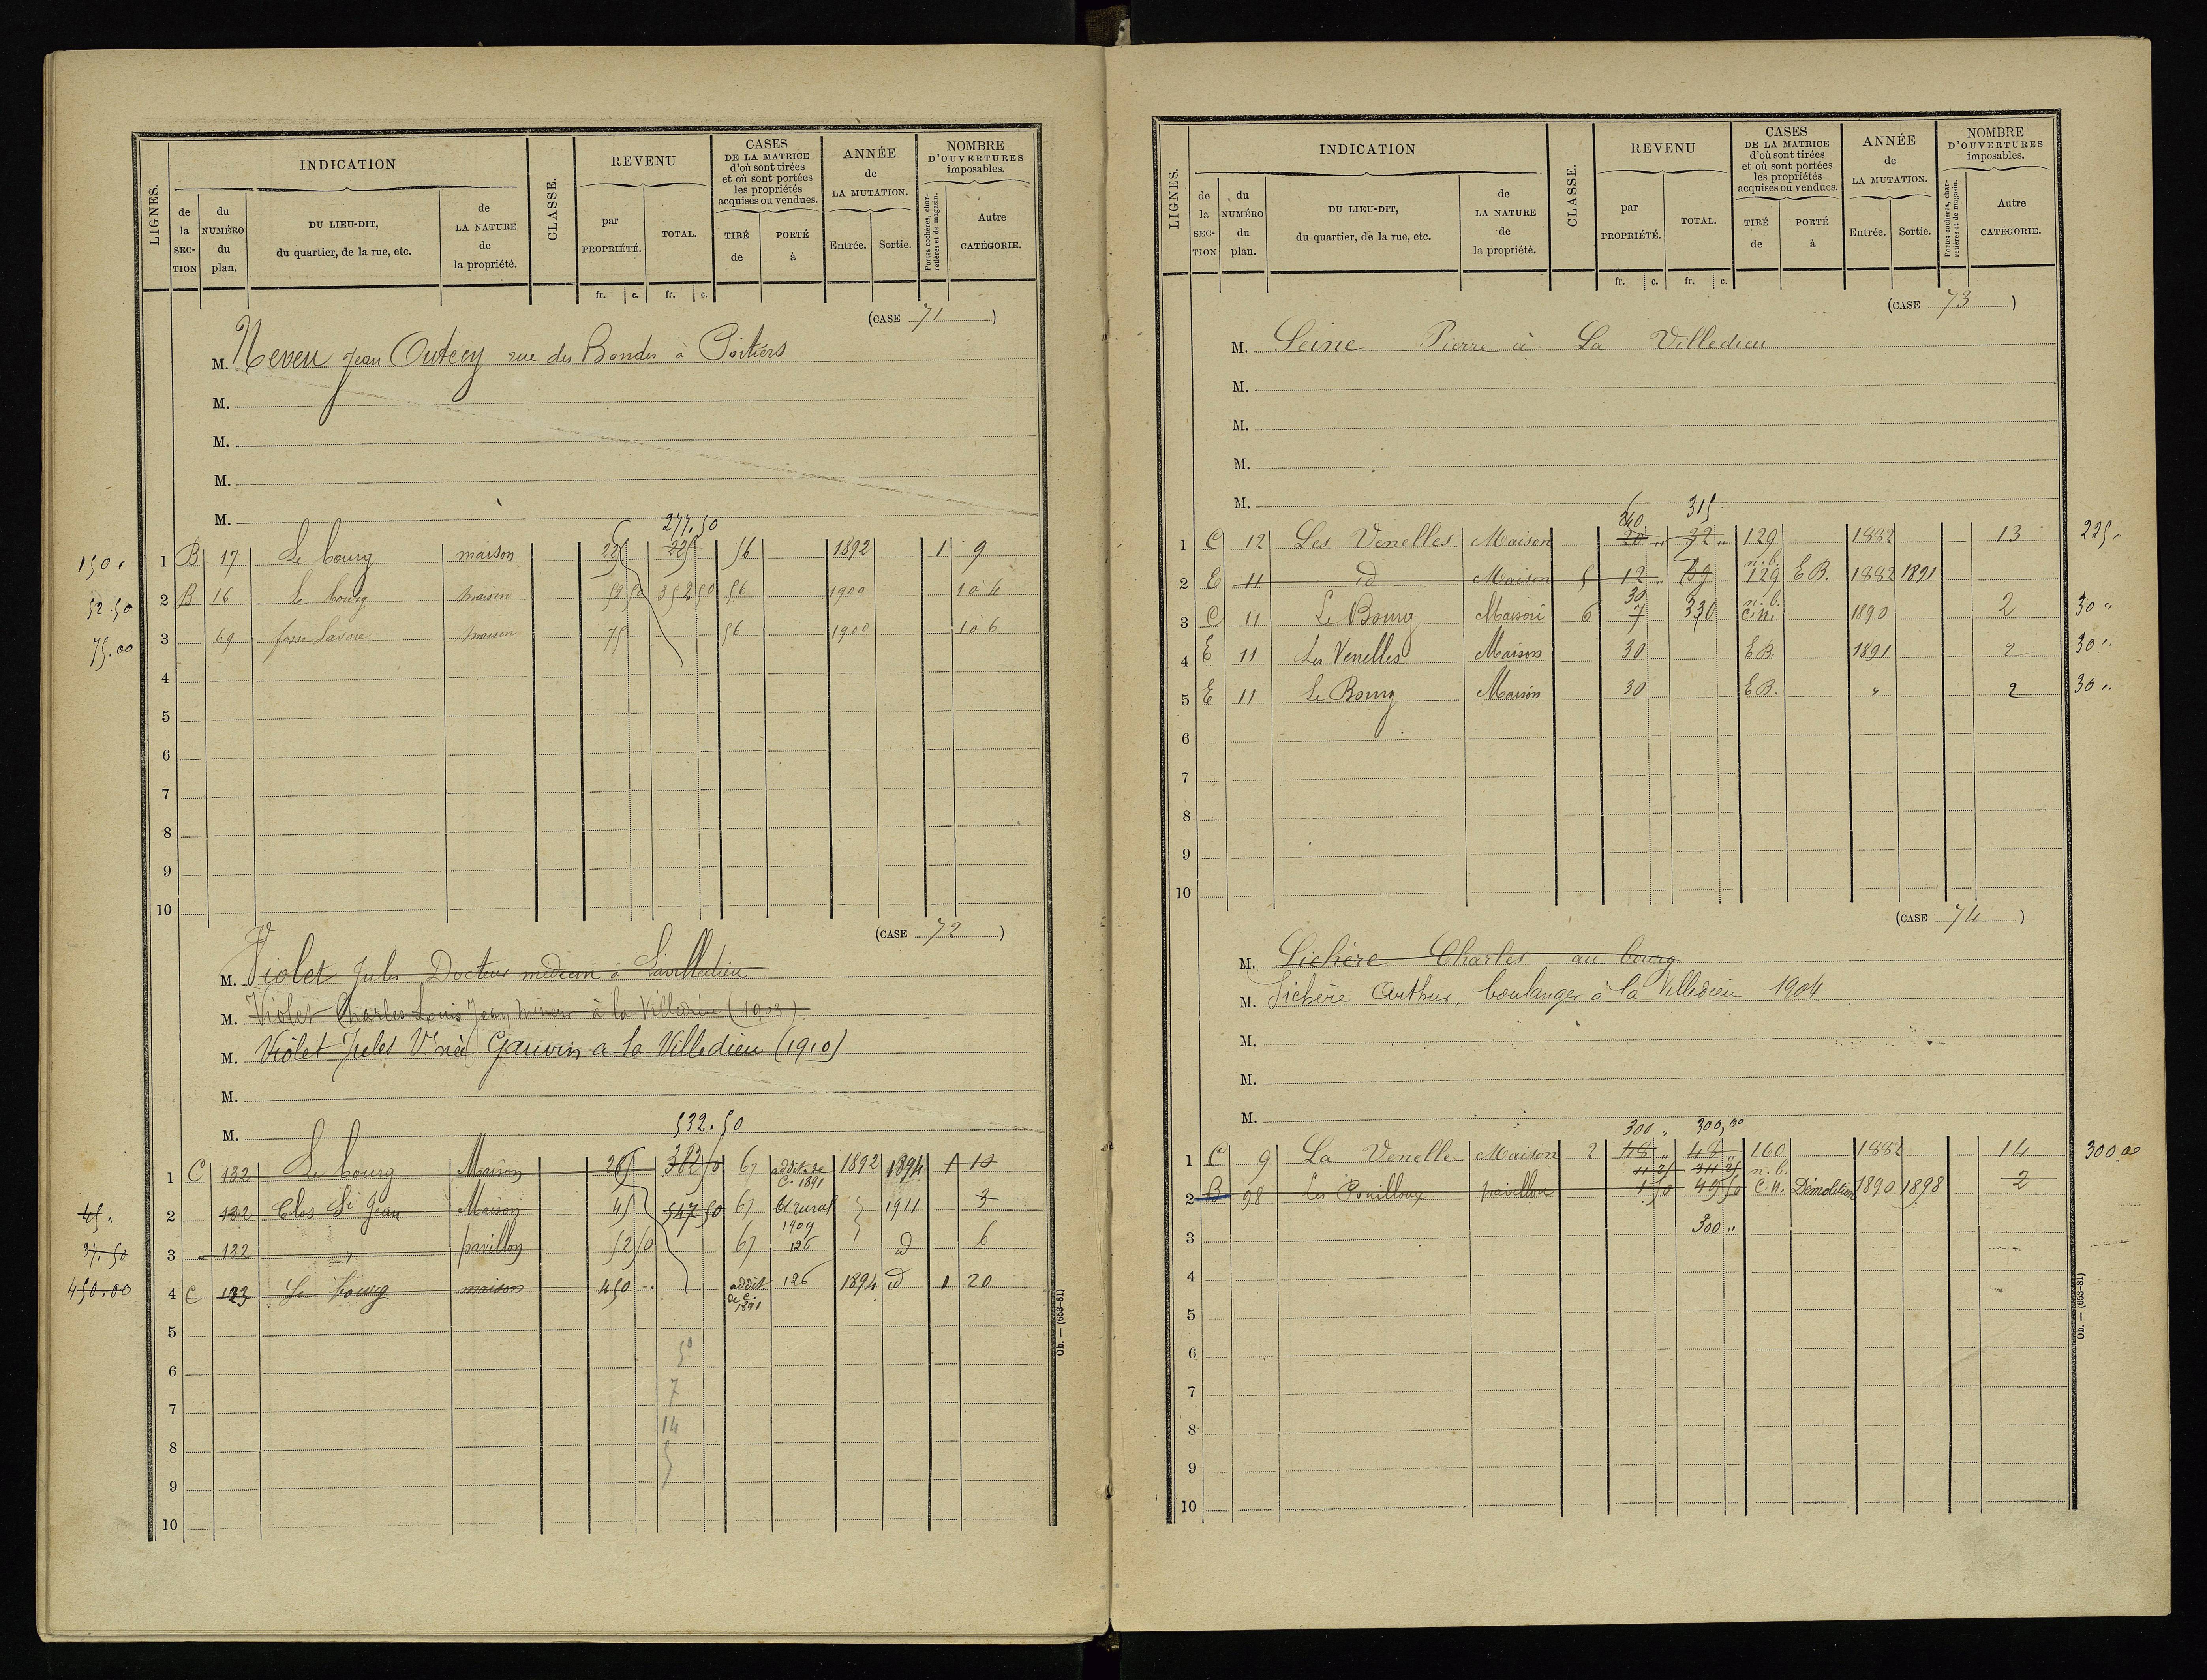 LIGNES.
INDICATION
de la SECTION
du NUMÉRO du plan.
DU LIEU-DIT, du quartier, de la rue, etc.
de LA NATURE de la propriété.
CLASSE.
REVENU
par PROPRIÉTÉ.
TOTAL.
fr. c. fr. c.
CASES DE LA MATRICE d'où sont tirées et où sont portées les propriétés acquises ou vendues.
TIRÉ de
PORTÉ à
ANNÉE de LA MUTATION.
Entrée. Sortie.
NOMBRE D'OUVERTURES imposables.
Portes cochères, charretières et de magasin.
Autre CATÉGORIE.
(CASE 71)
M. Neveu Jean rue des à Poitiers
M.
M.
M.
M.
277.50
150. 1 B 17 Le bourg maison 225 225 56 1892 1 9
52.50 2 B 16 Le bourg maison 52 50 352 50 56 1900
75.00 3 69 fosse maison 75 56 1900
4
5
6
7
8
9
10
(CASE 72)
M. Violet Jules Docteur medecin à Lavilledieu
M. Violet Charles Louis Jean mineur à la Villedieu (1903)
M. Violet Jules Vve née Gauvin a la Villedieu (1910)
M.
M.
532.50
1 C 132 Le bourg Maison 382 50 67 addit. de C. 1891 1892 1894 1 10
45. 2 132 Clos St Jean Maison 45 547 50 67 1911 3
37.50 3 132 " pavillon 52 50 67 1909 126 id 6
450.00 4 C 123 Le bourg maison 450 addit. de C. 1891 126 1894 id 1 20
5
6 50
7 7
8 14
9 5
10
Ob. — (653-81)
LIGNES.
INDICATION
de la SECTION
du NUMÉRO du plan.
DU LIEU-DIT, du quartier, de la rue, etc.
de LA NATURE de la propriété.
CLASSE.
REVENU
par PROPRIÉTÉ.
TOTAL.
fr. c. fr. c.
CASES DE LA MATRICE d'où sont tirées et où sont portées les propriétés acquises ou vendues.
TIRÉ de
PORTÉ à
ANNÉE de LA MUTATION.
Entrée. Sortie.
NOMBRE D'OUVERTURES imposables.
Portes cochères, charretières et de magasin.
Autre CATÉGORIE.
(CASE 73)
M. Seine Pierre à La Villedieu
M.
M.
M.
M.
240 315
1 C 12 Les Venelles Maison 20 " 32 " 129 1882 13 225 "
2 E 11 id Maison 5 12 " 39 n.b. 129 E B. 1882 1891
3 C 11 Le Bourg Maison 6 30 7 330 n.b. C.n. 1890 2 30 "
4 E 11 Les Venelles Maison 30 E B. 1891 2 30 "
5 E 11 Le Bourg Maison 30 E B. " 2 30 "
6
7
8
9
10
(CASE 74)
M. Sichère Charles au bourg
M. Sichère Arthur, boulanger à la Villedieu 1904
M.
M.
M.
300 " 300,00
1 C 9 La Venelle Maison 2 48 " 48 " 160 1882 14 300 00
11 25 311 25 n.b.
2 B 98 Les Pouilloux pavillon 1 50 49 50 C.n. Démolition 1890 1898 2
3 300 "
4
5
6
7
8
9
10
Ob. — (653-81)